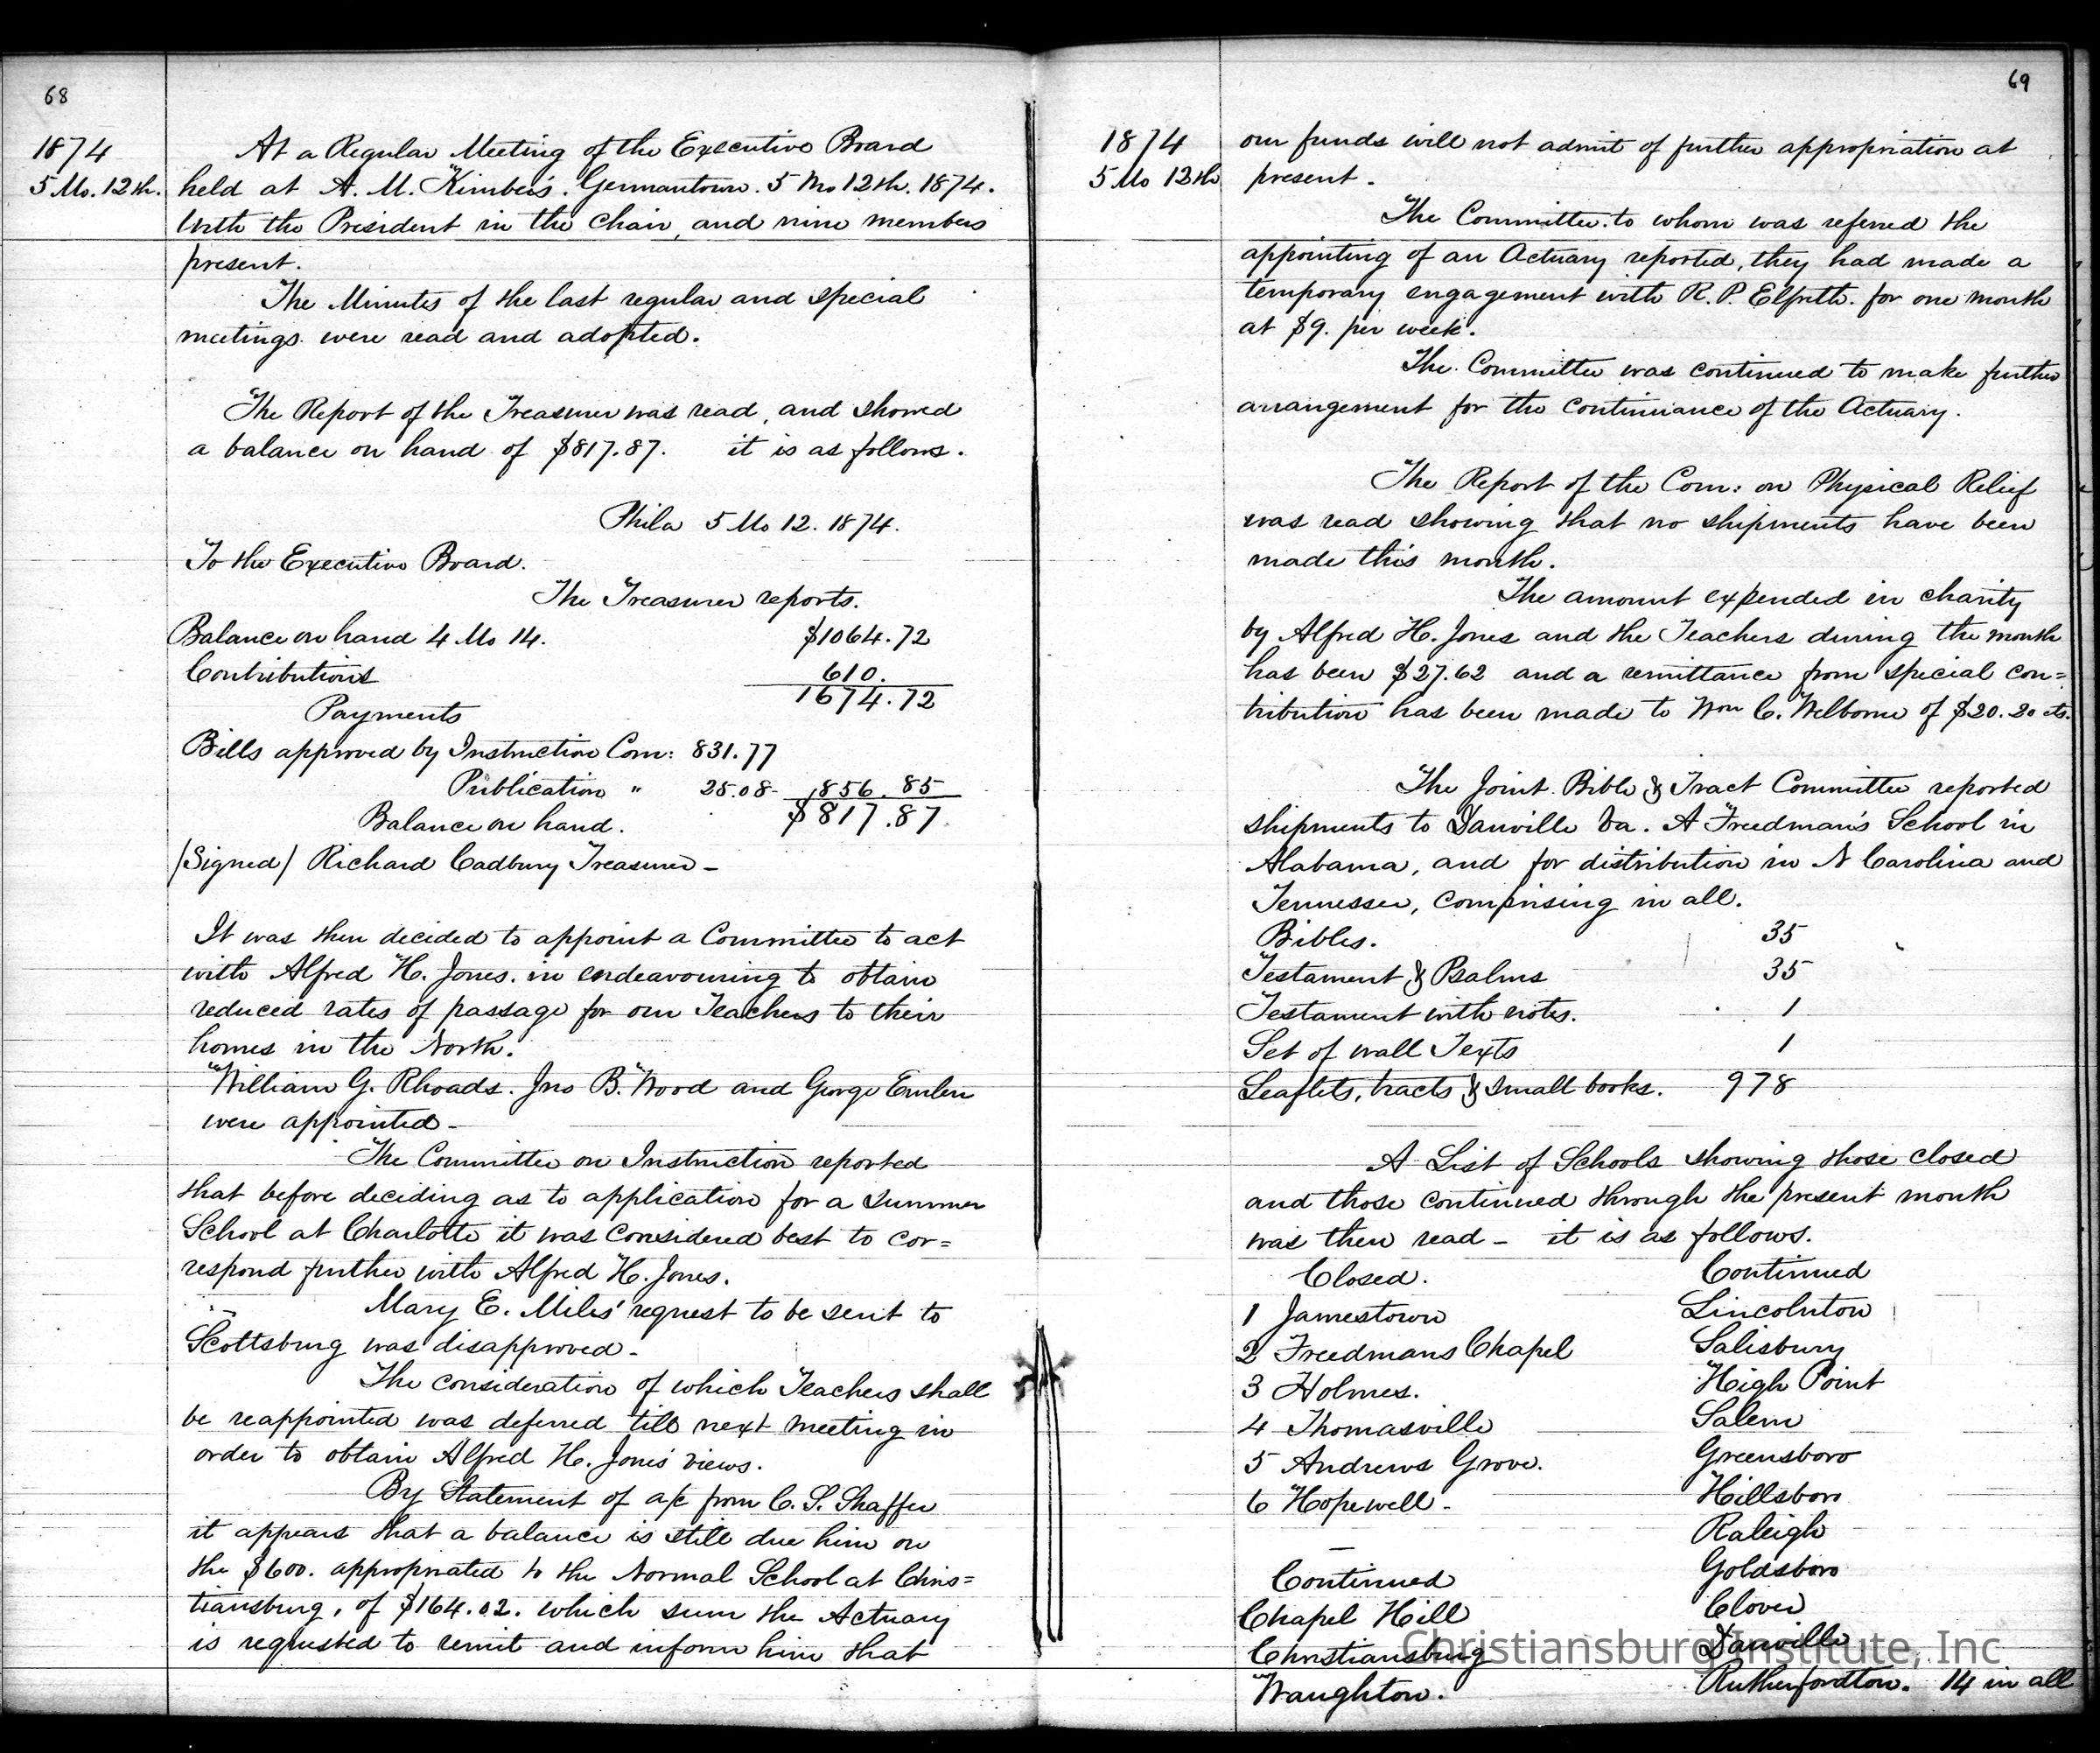 68
1874
5 Mo. 12th.
At a Regular Meeting of the Executive Board
held at A. M. Kimber's. Germantown. 5 Mo 12th. 1874.
With the President in the Chair, and nine members
present.
The Minutes of the last regular and special
meetings were read and adopted.
The Report of the Treasurer was read, and showed
a balance on hand of $817.87. it is as follows.
Phila 5 Mo 12. 1874.
To the Executive Board.
The Treasurer reports.
Balance on hand 4 Mo 14. $1064.72
Contributions 610.
1674.72
Payments
Bills approved by Instruction Com: 831.77
Publication " 25.08 856.85
Balance on hand. $817.87
/Signed/ Richard Cadbury Treasurer -
It was then decided to appoint a Committee to act
with Alfred H. Jones. in endeavouring to obtain
reduced rates of passage for our Teachers to their
homes in the North.
William G. Rhoads. Jno B. Wood and George Emlen
were appointed -
The Committee on Instruction reported
that before deciding as to application for a Summer
School at Charlotte it was considered best to cor=
respond further with Alfred H. Jones.
Mary E. Miles' request to be sent to
Scottsburg was disapproved -
The consideration of which Teachers shall
be reappointed was deferred till next meeting in
order to obtain Alfred H. Jones' views.
By Statement of a/c from C. S. Shaffer
it appears that a balance is still due him on
the $600. appropriated to the Normal School at Chris=
tiansburg, of $164.02. which sum the Actuary
is requested to remit and inform him that
69
1874
5 Mo 12th
our funds will not admit of further appropriation at
present.
The Committee to whom was referred the
appointing of an Actuary reported, they had made a
temporary engagement with R. P. Elfreth. for one month
at $9. per week.
The Committee was continued to make further
arrangement for the continuance of the Actuary.
The Report of the Com: on Physical Relief
was read showing that no shipments have been
made this month.
The amount expended in charity
by Alfred H. Jones and the Teachers during the month
has been $27.62 and a remittance from special con=
tribution has been made to Wm C. Welborne of $20.20 cts.
The Joint Bible & Tract Committee reported
shipments to Danville Va. A Freedman's School in
Alabama, and for distribution in N Carolina and
Tennessee, comprising in all.
Bibles. 35
Testament & Psalms 35
Testament with notes. 1
Set of wall Texts 1
Leaflets, tracts & small books. 978
A List of Schools showing those closed
and those continued through the present month
was then read - it is as follows.
Closed. Continued
1 Jamestown Lincolnton
2 Freedmans Chapel Salisbury
3 Holmes. High Point
4 Thomasville Salem
5 Andrews Grove. Greensboro
6 Hopewell - Hillsboro
Raleigh
Continued Goldsboro
Chapel Hill Clover
Christiansburg Danville
Waughton. Rutherfordton. 14 in all
Christiansburg Institute, Inc